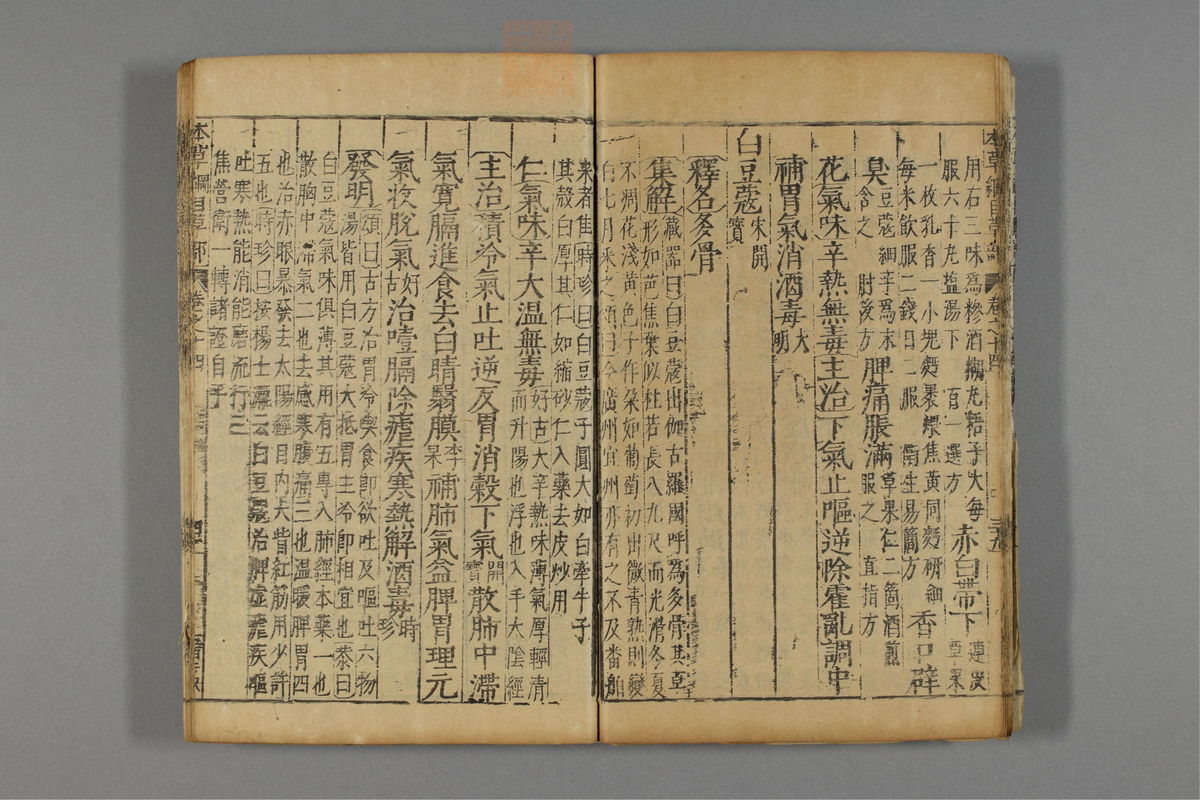 本草綱目草部 卷之十四
用石三味爲糝酒糊丸梧子大每
服六十丸鹽湯下 百一選方 赤白帶下
一枚乳香一小塊麵裹煨焦黃同麵研細
每米飲服二錢日二服 衛生易簡方 香口辟
臭 豆蔻細辛爲末含之 肘後方 脾痛脹滿 草果仁二箇酒煎服之 直指方
花氣味辛熱無毒主治下氣止嘔逆除霍亂調中
補胃氣消酒毒 大明
白豆蔻 宋開寶
釋名多骨
集解藏器曰白豆蔻出伽古羅國呼爲多骨其草
形如芭蕉葉似杜若長八九尺而光滑冬夏
不凋花淺黃色子作朵如葡萄初出微青熟則變
白七月采之頌曰今廣州宜州亦有之不及番舶
來者佳時珍曰白豆蔻子圓大如白牽牛子
其殼白厚其仁如縮砂仁入藥去皮炒用
仁氣味辛大溫無毒 好古大辛熱味薄氣厚輕清而升陽也浮也入手太陰經
主治積冷氣止吐逆反胃消穀下氣 開寶 散肺中滯
氣寬膈進食去白睛翳膜 李杲 補肺氣益脾胃理元
氣收脫氣 好古 治噎膈除瘧疾寒熱解酒毒 時珍
發明頌曰古方治胃冷喫食卽欲吐及嘔吐六物
湯皆用白豆蔻大抵胃主冷卽相宜也杲曰
白豆蔻氣味俱薄其用有五專入肺經本藥一也
散胸中滯氣二也去感寒腹痛三也溫暖脾胃四
也治赤眼暴發去太陽經目內大眥紅筋用少許
五也時珍曰按楊士瀛云白豆蔻治脾虛瘧疾嘔
吐寒熱能消能磨流行三
焦營衛一轉諸證自平
本草綱目草部 卷之十四